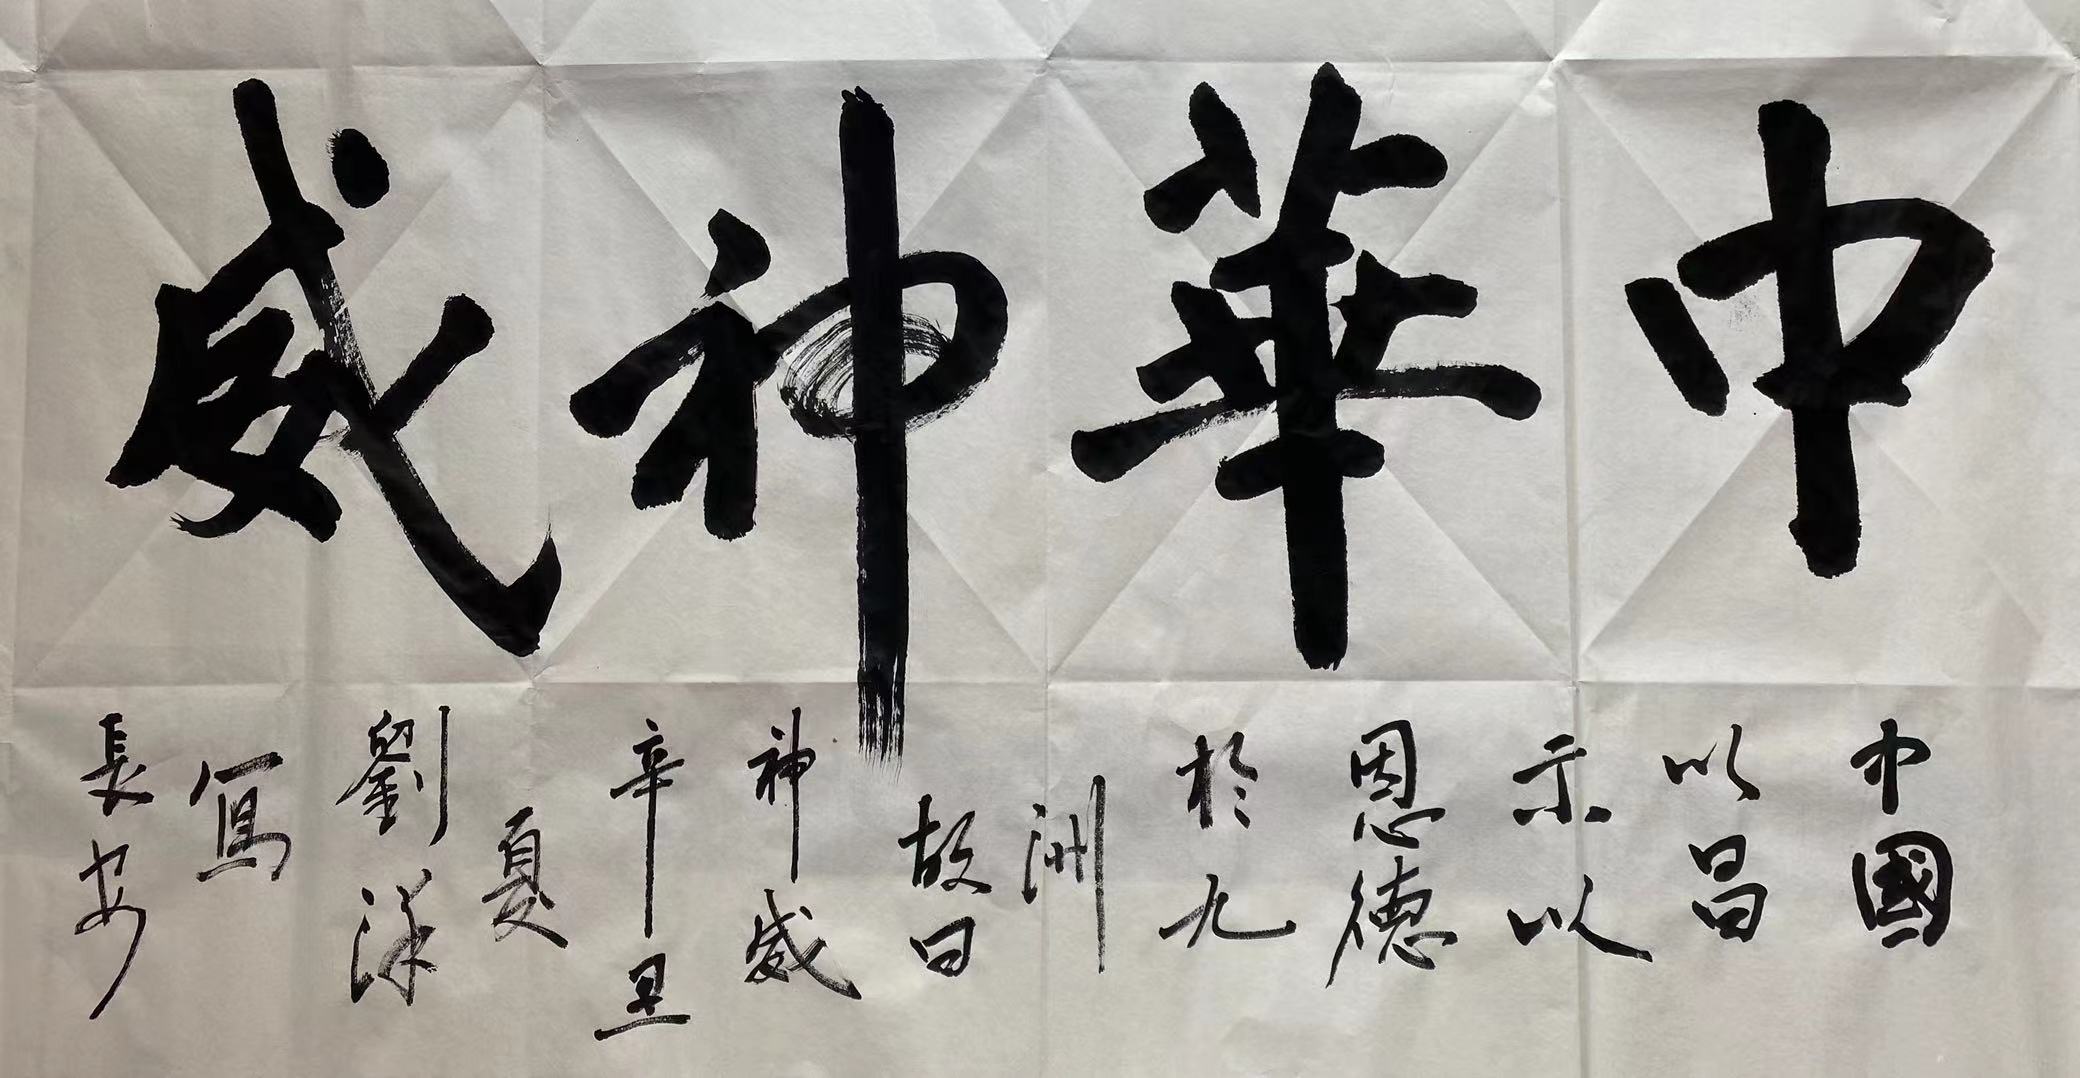 中華神威
中國
以昌
示以
恩德
於九
洲
故曰
神威
辛丑
夏
劉洋
寫
長安